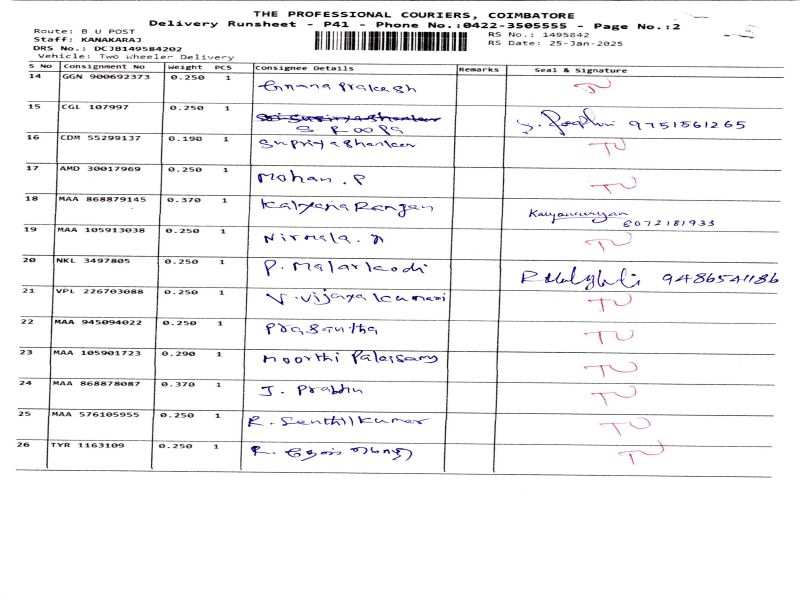 THE PROFESSIONAL COURIERS, COIMBATORE
Delivery Runsheet - P41 - Phone No.:0422-3505555 - Page No.:2
Route: B U POST
RS No.: 1495842
Staff: KANAKARAJ
RS Date: 25-Jan-2025
DRS No.: DCJB149584202
Vehicle: Two Wheeler Delivery
S No Consignment No Weight PCS Consignee Details Remarks Seal & Signature
14 GGN 900692373 0.250 1 Gnana Prakash TU
15 CGL 107997 0.250 1 S Roopa 9751561265
16 CDM 55299137 0.190 1 Supriya Shankar TU
17 AMD 30017969 0.250 1 Mohan . P TU
18 MAA 868879145 0.370 1 Kalyana Rangan 8072181933
19 MAA 105913038 0.250 1 Nirmala . N TU
20 NKL 3497805 0.250 1 P. Malarkodi 9486541186
21 VPL 226703088 0.250 1 V. Vijaya Kumari TU
22 MAA 945094022 0.250 1 Prasantha TU
23 MAA 105901723 0.290 1 Moorthi Palaisamy TU
24 MAA 868878087 0.370 1 J. Prabhu TU
25 MAA 576105955 0.250 1 R. Senthil Kumar TU
26 TYR 1163109 0.250 1 R. TU